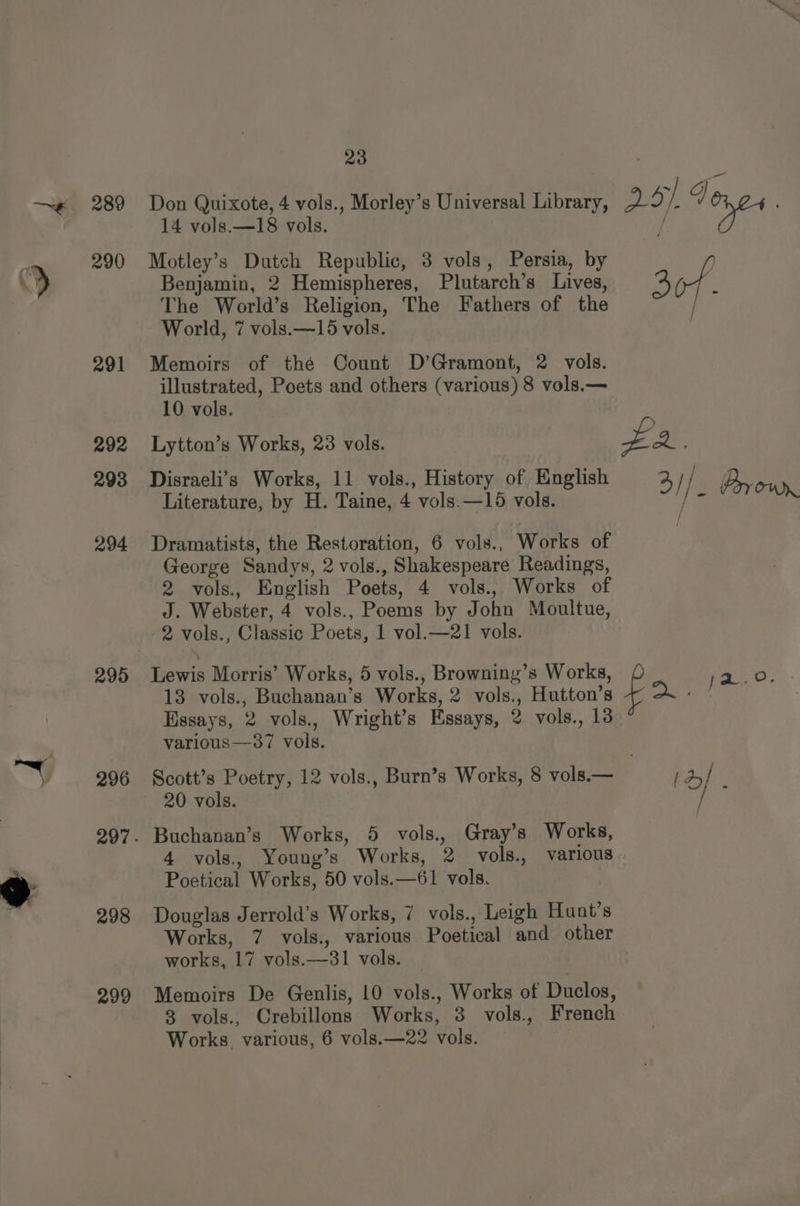 23
289 Don Quixote, 4 vols., Morley's Universal Library, 25/.
14 vols.—18 vols.
290 Motley's Dutch Republic, 3 vols, Persia, by
Benjamin, 2 Hemispheres, Plutarch's Lives, 30/-
The World's Religion, The Fathers of the
World, 7 vols.—15 vols.
291 Memoirs of the Count D'Gramont, 2 vols.
illustrated, Poets and others (various) 8 vols.—
10 vols.
292 Lytton's Works, 23 vols. £2.
293 Disraeli's Works, 11 vols., History of English 31/- Brown
Literature, by H. Taine, 4 vols.—15 vols.
294 Dramatists, the Restoration, 6 vols., Works of
George Sandys, 2 vols., Shakespeare Readings,
2 vols., English Poets, 4 vols., Works of
J. Webster, 4 vols., Poems by John Moultue,
2 vols., Classic Poets, 1 vol.—21 vols.
295 Lewis Morris' Works, 5 vols., Browning's Works, £2. 12.0.
13 vols., Buchanan's Works, 2 vols., Hutton's
Essays, 2 vols., Wright's Essays, 2 vols., 13
various—37 vols.
296 Scott's Poetry, 12 vols., Burn's Works, 8 vols.—
20 vols.
297. Buchanan's Works, 5 vols., Gray's Works,
4 vols., Young's Works, 2 vols., various
Poetical Works, 50 vols.—61 vols.
298 Douglas Jerrold's Works, 7 vols., Leigh Hunt's
Works, 7 vols., various Poetical and other
works, 17 vols.—31 vols.
299 Memoirs De Genlis, 10 vols., Works of Duclos,
3 vols., Crebillons Works, 3 vols., French
Works, various, 6 vols.—22 vols.